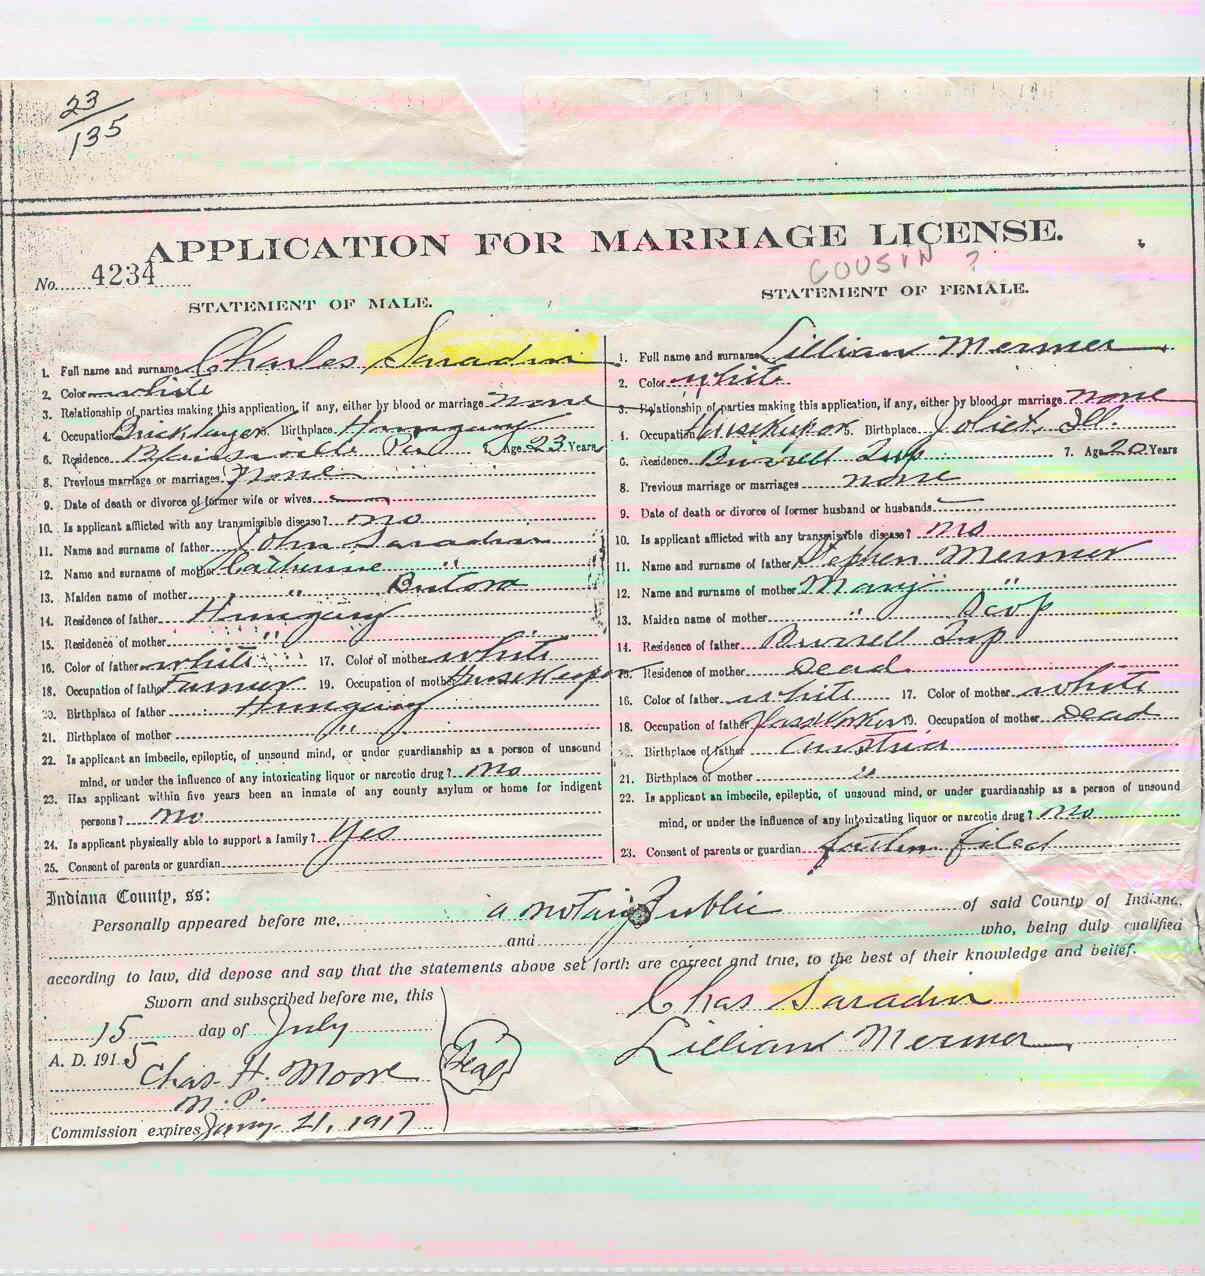 23
135
APPLICATION FOR MARRIAGE LICENSE.
No. 4234
COUSIN ?
STATEMENT OF MALE.
1. Full name and surname Charles Saradin
2. Color white
3. Relationship of parties making this application, if any, either by blood or marriage none
4. Occupation Bricklayer 5. Birthplace Hungary
6. Residence Blairsville Pa 7. Age 23 Years
8. Previous marriage or marriages none
9. Date of death or divorce of former wife or wives
10. Is applicant afflicted with any transmissible disease? no
11. Name and surname of father John Saradin
12. Name and surname of mother Catherine "
13. Maiden name of mother " Butora
14. Residence of father Hungary
15. Residence of mother "
16. Color of father white 17. Color of mother white
18. Occupation of father Farmer 19. Occupation of mother Housekeeper
20. Birthplace of father Hungary
21. Birthplace of mother "
22. Is applicant an imbecile, epileptic, of unsound mind, or under guardianship as a person of unsound
mind, or under the influence of any intoxicating liquor or narcotic drug? no
23. Has applicant within five years been an inmate of any county asylum or home for indigent
persons? no
24. Is applicant physically able to support a family? Yes
25. Consent of parents or guardian
STATEMENT OF FEMALE.
1. Full name and surname Lillian Mermer
2. Color white
3. Relationship of parties making this application, if any, either by blood or marriage none
4. Occupation Housekeeper 5. Birthplace Joliet, Ill.
6. Residence Burrell Twp 7. Age 20 Years
8. Previous marriage or marriages none
9. Date of death or divorce of former husband or husbands
10. Is applicant afflicted with any transmissible disease? no
11. Name and surname of father Stephen Mermer
12. Name and surname of mother Mary "
13. Maiden name of mother "
14. Residence of father Burrell Twp
15. Residence of mother Dead
16. Color of father white 17. Color of mother white
18. Occupation of father Glassworker 19. Occupation of mother Dead
20. Birthplace of father Austria
21. Birthplace of mother "
22. Is applicant an imbecile, epileptic, of unsound mind, or under guardianship as a person of unsound
mind, or under the influence of any intoxicating liquor or narcotic drug? no
23. Consent of parents or guardian father filed
Indiana County, ss:
Personally appeared before me, a notary Public of said County of Indiana,
and who, being duly qualified
according to law, did depose and say that the statements above set forth are correct and true, to the best of their knowledge and belief.
Sworn and subscribed before me, this
15 day of July
A. D. 1915
Chas. H. Moore
N. P.
Commission expires Jany 21, 1917
Seal
Chas Saradin
Lillian Mermer